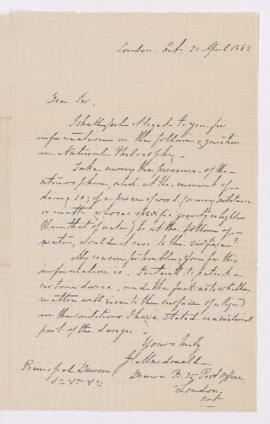 London, Ont. 21 April 1883
Dear Sir,
I shall feel obliged to you for
information on the following question
in Natural Philosophy.
Take away the pressure of the
atmosphere, would, at the moment of
doing so, if a piece of wood, or any substance
or matter whose specific gravity is lighter
than that of water, be at the bottom of
water, would it rise to the surface?
My reason for troubling you for this
information is, I intend to patent a
certain device, and the fact as to whether
matter will rise to the surface of a liquid
in the conditions I have stated is a material
part of the design.
Yours truly
J. Macdonald
Drawer B. 35 Post Office
London
Ont
Principal Dawson